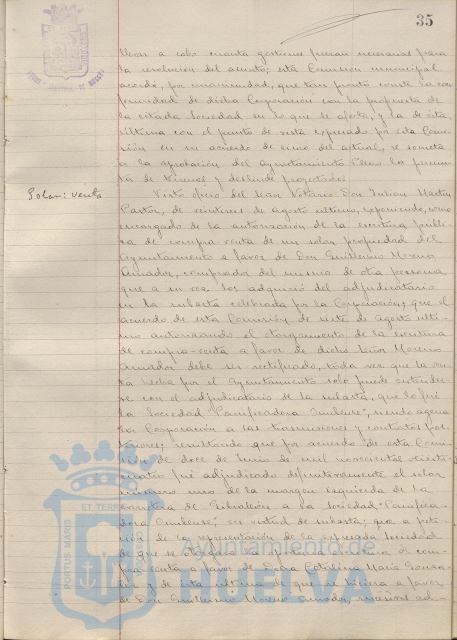 35
llevar a cabo cuanta gestiones fueran necesarias para
la resolución del asunto; esta Comisión municipal
acordó, por unanimidad, que tan pronto conste la con-
formidad de dicha Corporación con la propuesta de
la citada Sociedad en lo que le afecta, y la de ésta
última con el punto de vista expresado por esta Comi-
sión en su acuerdo de cinco del actual, se someta
a la aprobación del Ayuntamiento Pleno la permu-
ta de terrenos y deslinde proyectados
Solar: venta
Visto oficio del señor Notario Don Julian Martin
Pastor, de veintitres de agosto último, exponiendo, como
encargado de la autorización de la escritura públi-
ca de compra venta de un solar propiedad del
Ayuntamiento a favor de Don Guillermo Moreno
Amador, comprador del mismo de otra persona
que a su vez los adquirió del adjudicatario
en la subasta celebrada por la Corporación, que el
acuerdo de esta Comisión de siete de agosto últi-
mo autorizando el otorgamiento de la escritura
de compra-venta a favor de dicho señor Moreno
Amador debe ser rectificado, toda vez que la ven-
ta hecha por el Ayuntamiento solo puede entender-
se con el adjudicatario de la subasta, que lo fué
la Sociedad "Panificadora Onubense", siendo agena
la Corporación a las trasmisiones y contratos pos-
teriores; resultando que por acuerdo de esta Comi-
sión de doce de Junio de mil novecientos veinti-
cuatro fué adjudicado definitivamente el solar
número uno de la margen izquierda de la
carretera de Gibraleón a la Sociedad "Panifica-
dora Onubense", en virtud de subasta; que a peti-
ción de la representación de la expresada Sociedad
de que se otorgara la escritura de com-
pra-venta a favor de Doña Catalina Maria Gonza-
lez y de esta última el que se hiciera a favor
de Don Guillermo Moreno Amador, recaidos ad-
Ayuntamiento de
HUELVA
PORTUS MARIS
ET TERRAE